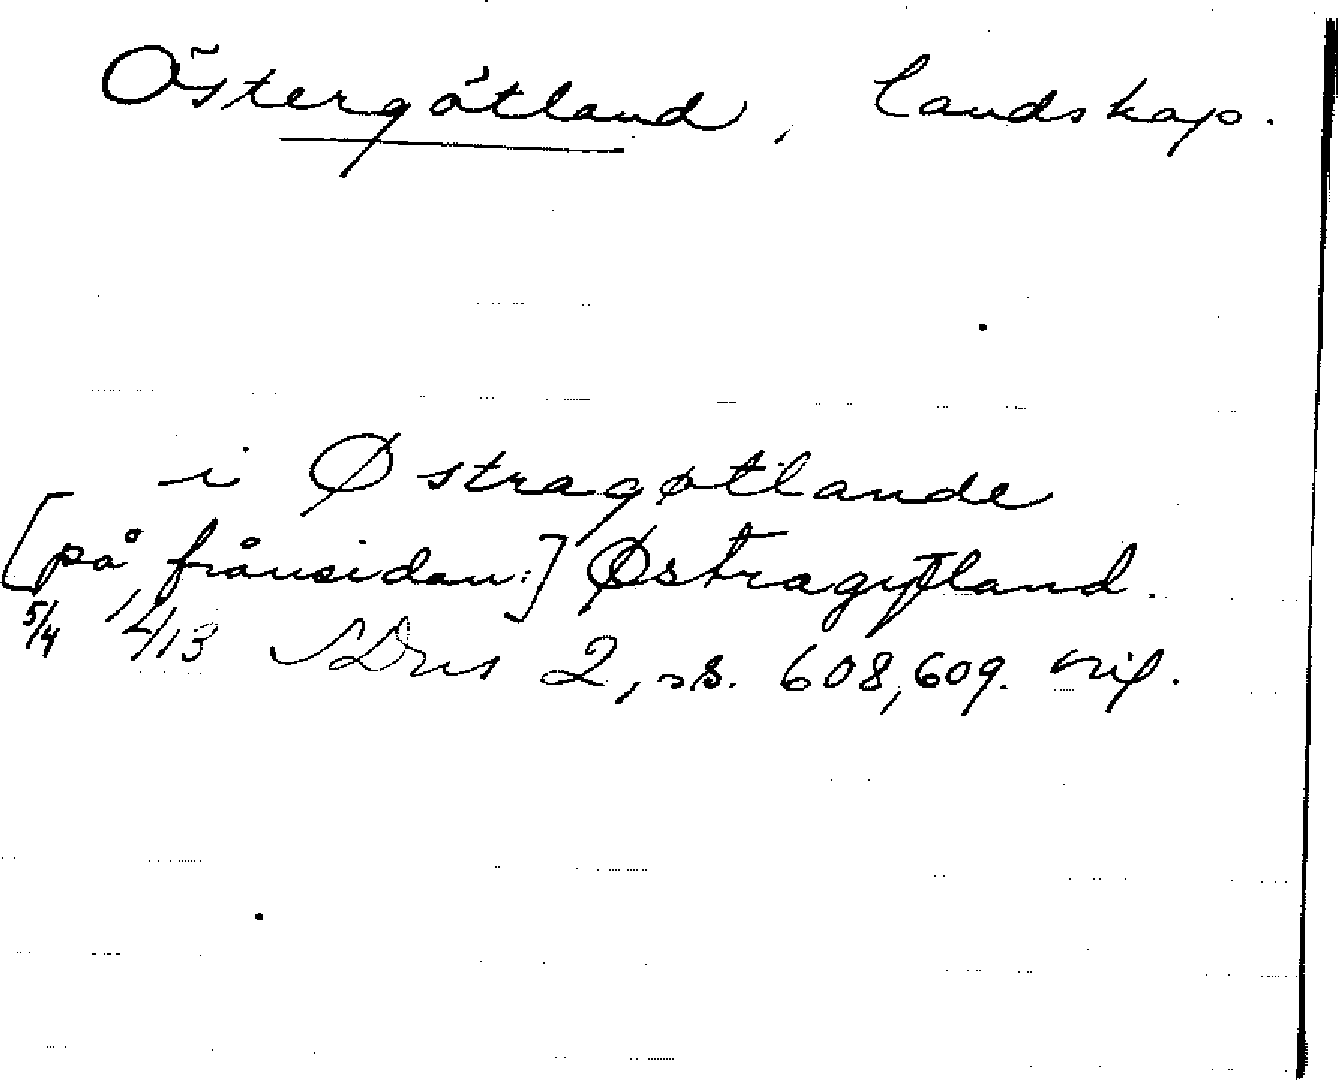 Östergötland, landskap.
i Østragøtlande
[på frånsidan:] Østragøtland.
5/4 1413 SDns 2, s. 608, 609. vid.